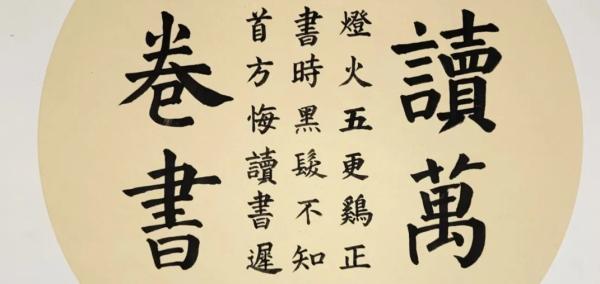 讀萬
燈火五更鷄正
書時黑髮不知
首方悔讀書遲
卷書